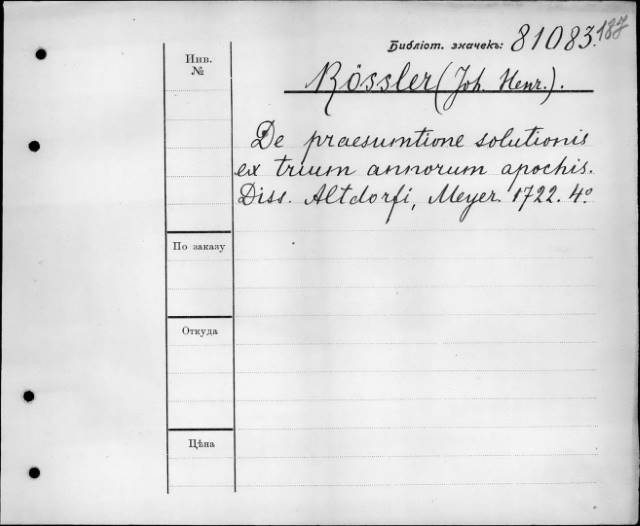 Библіот. значекъ: 81083.187
Инв.
№
Rössler (Joh. Henr.).
De praesumtione solutionis
ex trium annorum apochis.
Diss. Altdorfi, Meyer. 1722. 4º
По заказу
Откуда
Цѣна